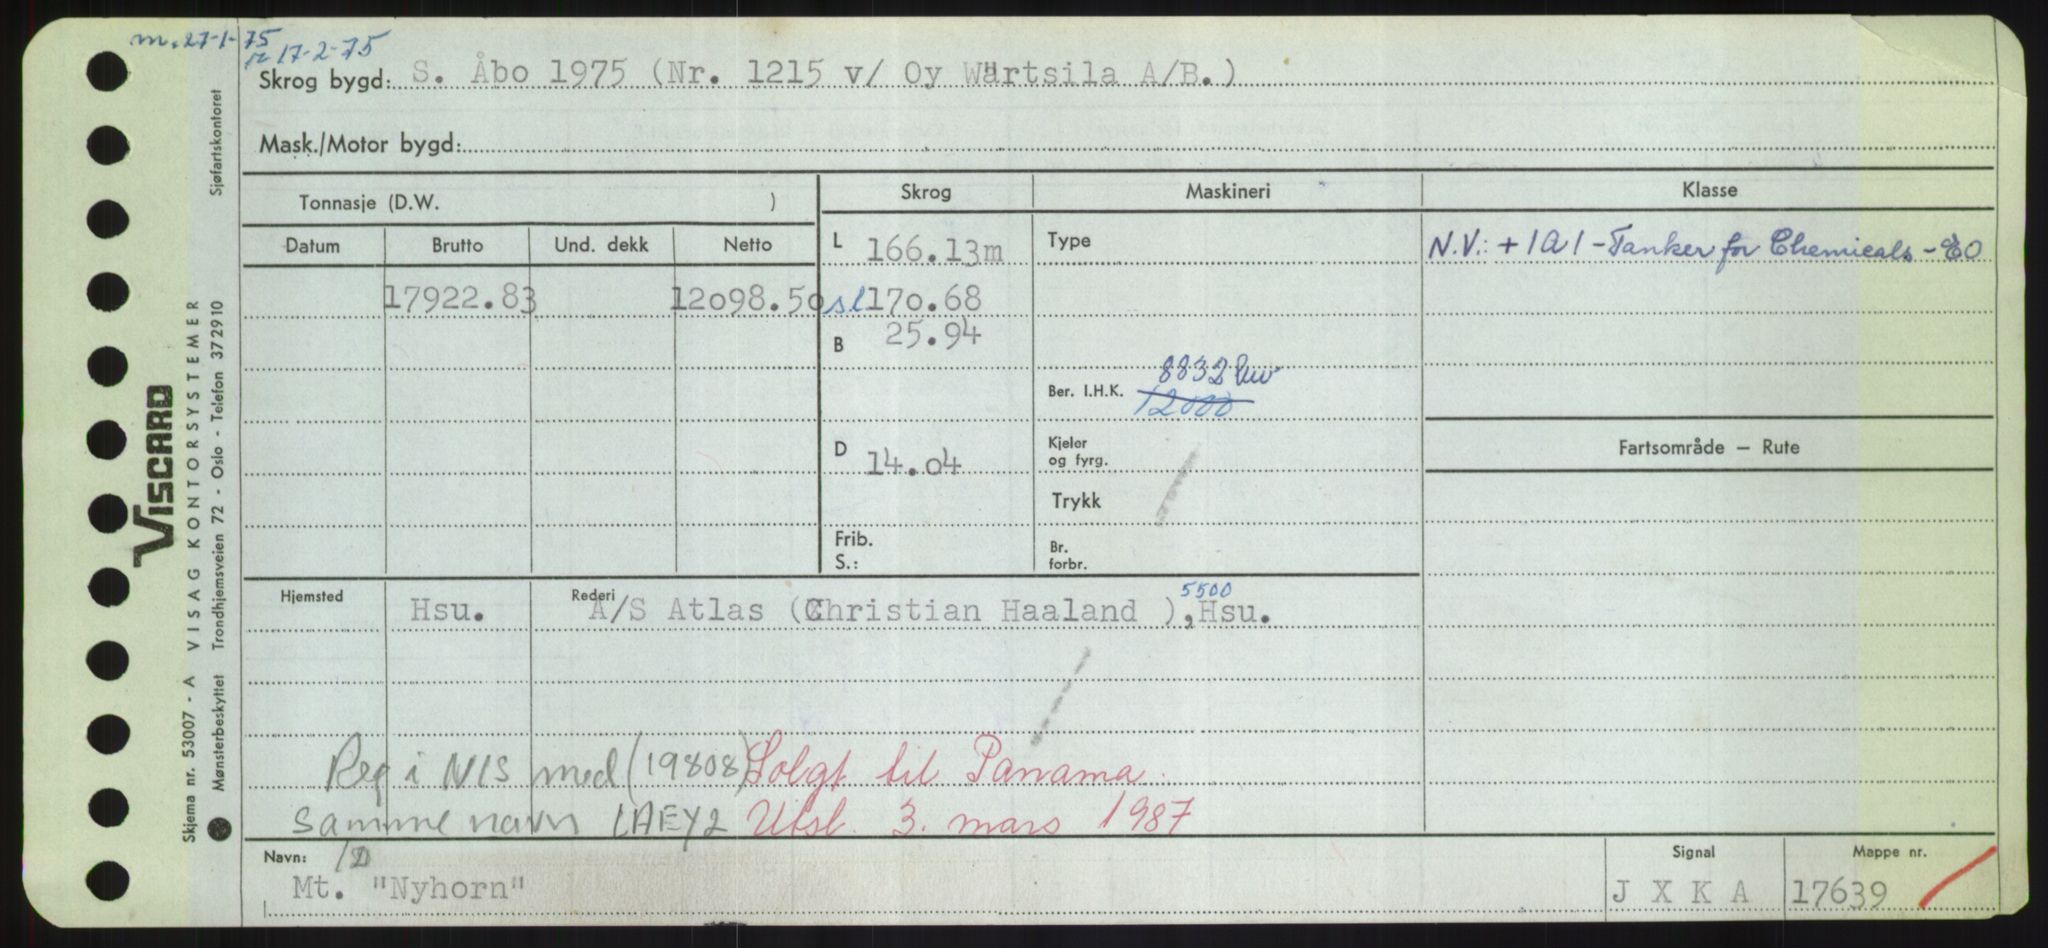 m. 27-1-75
r 17-2-75
Skrog bygd: S. Åbo 1975 (Nr. 1215 v/ Oy Wärtsila A/B.)
Mask./Motor bygd:
Tonnasje (D.W. )
Skrog
Maskineri
Klasse
Datum
Brutto
Und. dekk
Netto
L 166.13m
Type
N.V.: + 1A1 - Tanker for Chemicals - EO
17922.83
12098.50
sl 170.68
B 25.94
8832 kw
Ber. I.H.K. 12000
D 14.04
Kjeler
og fyrg.
Fartsområde — Rute
Trykk
Frib.
S.:
Br.
forbr.
Hjemsted
Hsu.
Rederi
5500
A/S Atlas (Christian Haaland ), Hsu.
Reg i NIS med (19808) Solgt til Panama.
samme navn LAEY2 Utsl. 3. mars 1987
Navn:
/D
Mt. "Nyhorn"
Signal
J X K A
Mappe nr.
17639
VISCARD
Skjema nr. 53007 - A VISAG KONTORSYSTEMER
Mønsterbeskyttet Trondhjemsveien 72 - Oslo - Telefon 372910 Sjøfartskontoret